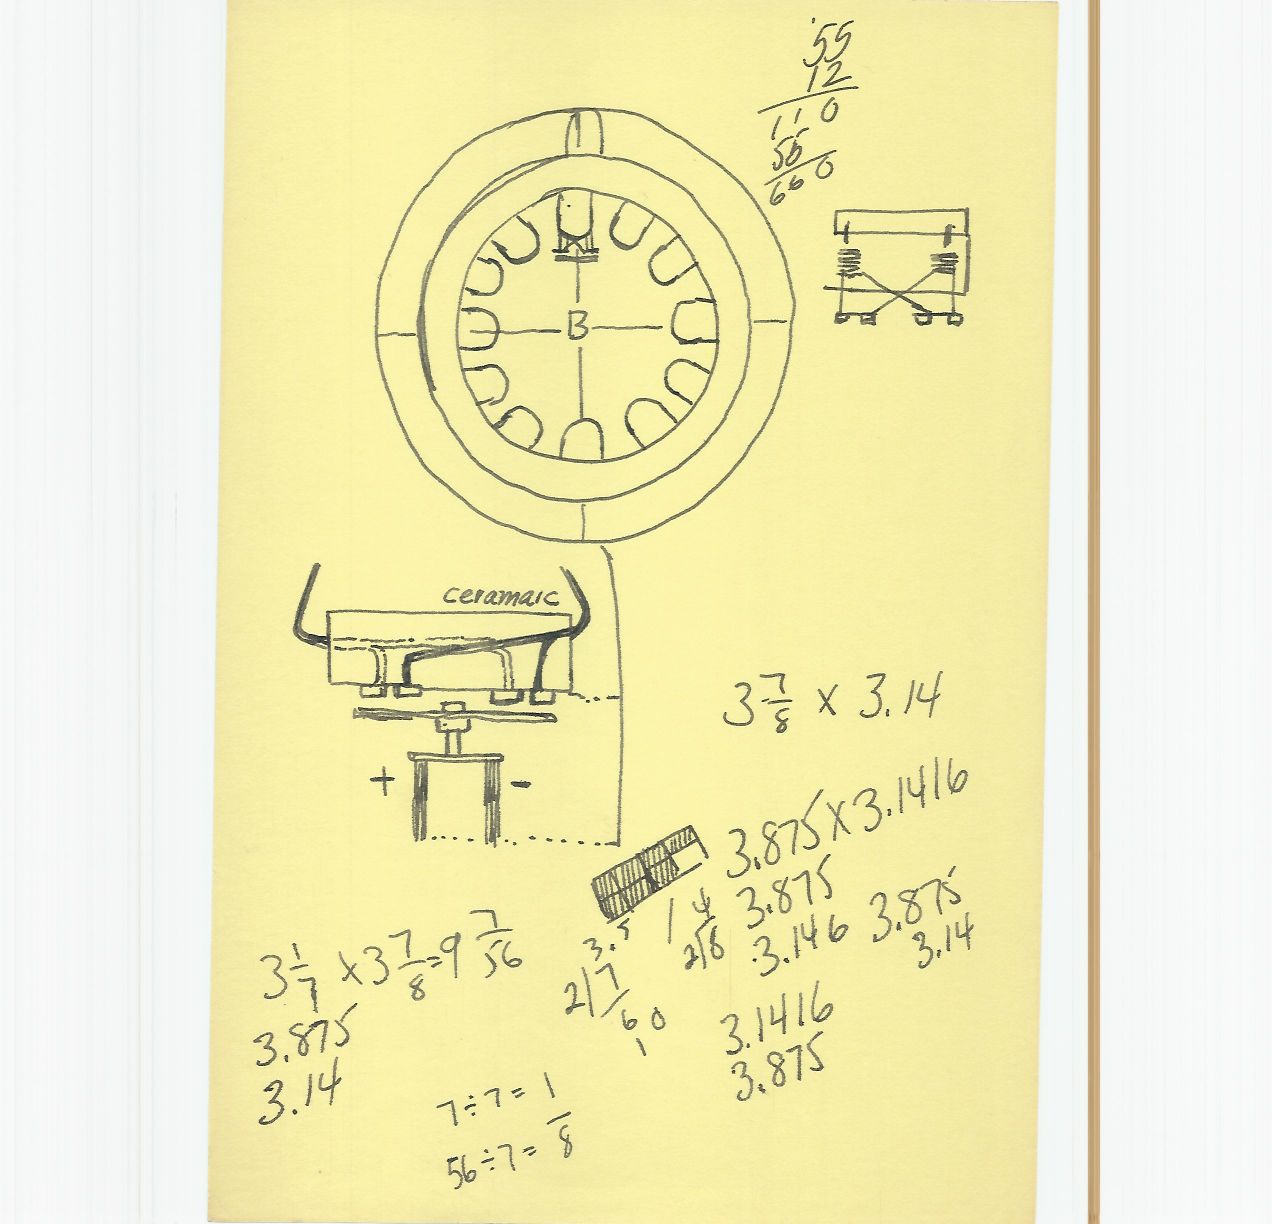 .55
12
110
55
660
B
ceramaic
+ -
3 7/8 x 3.14
3.875 x 3.1416
3.875
3.146
3.875
3.14
3.1416
3.875
1 4
2|8
3.5
2|7
6 0
1
3 1/7 x 3 7/8 = 9 7/56
3.875
3.14
7÷7= 1
56÷7= 8